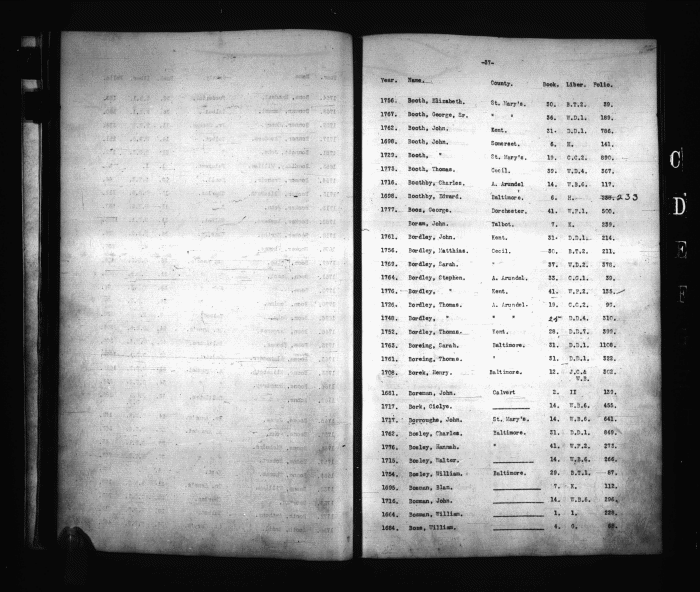 -57-
Year. Name. County. Book. Liber. Folio.
1756. Booth, Elizabeth. St. Mary's. 30. B.T.2. 39.
1767. Booth, George, Sr. " " 36. W.D.1. 189.
1762. Booth, John. Kent. 31. D.D.1. 766.
1698. Booth, John. Somerset. 6. H. 141.
Booth, " St. Mary's. 19. C.C.2. 890.
1773. Booth, Thomas. Cecil. 39. W.D.4. 367.
1716. Boothby, Charles. A. Arundel 14. W.B.6. 117.
1698. Boothby, Edward. Baltimore. 6. H. 233
1777. Booz, George. Dorchester. 41. W.F.1. 500.
Boram, John. Talbot. 7. K. 239.
1761. Bordley, John Kent. 31. D.D.1. 214.
1756. Bordley, Matthias. Cecil. 30. B.T.2. 211.
Bordley, Sarah. " 37. W.D.2. 378.
1764. Bordley, Stephen. A. Arundel. 33. C.G.1. 30.
1776. Bordley, " Kent. 41. W.F.2. 135.
1726. Bordley, Thomas. A. Arundel. 19. C.C.2. 90.
1748. Bordley, " " " 25 D.D.4. 310.
1752. Bordley, Thomas. Kent. 28. D.D.7. 399.
1763. Boreing, Sarah. Baltimore. 31. D.D.1. 1108.
1761. Boreing, Thomas. " 31. D.D.1. 322.
1708. Borek, Henry. Baltimore. 12. J.C.& 302.
W.B.
1681. Boreman, John. Calvert 2. II 139.
1717. Bork, Cislye. 14. W.B.6. 455.
1717. Borroughs, John. St. Mary's. 14. W.B.6. 641.
1762. Bosley, Charles. Baltimore. 31. D.D.1.
1776. Bosley, Hannah. " 41. W.F.2. 275.
1715. Bosley, Walter. 14. W.B.6. 266.
1754. Bosley, William. Baltimore. 29. B.T.1. 67.
1695. Bosman, Blan. 7. K. 112.
1716. Bosman, John. 14. W.B.6. 296.
1664. Bosman, William. 1. 1. 228.
1684. Boss, William. 4. G. 
C
D
E
F